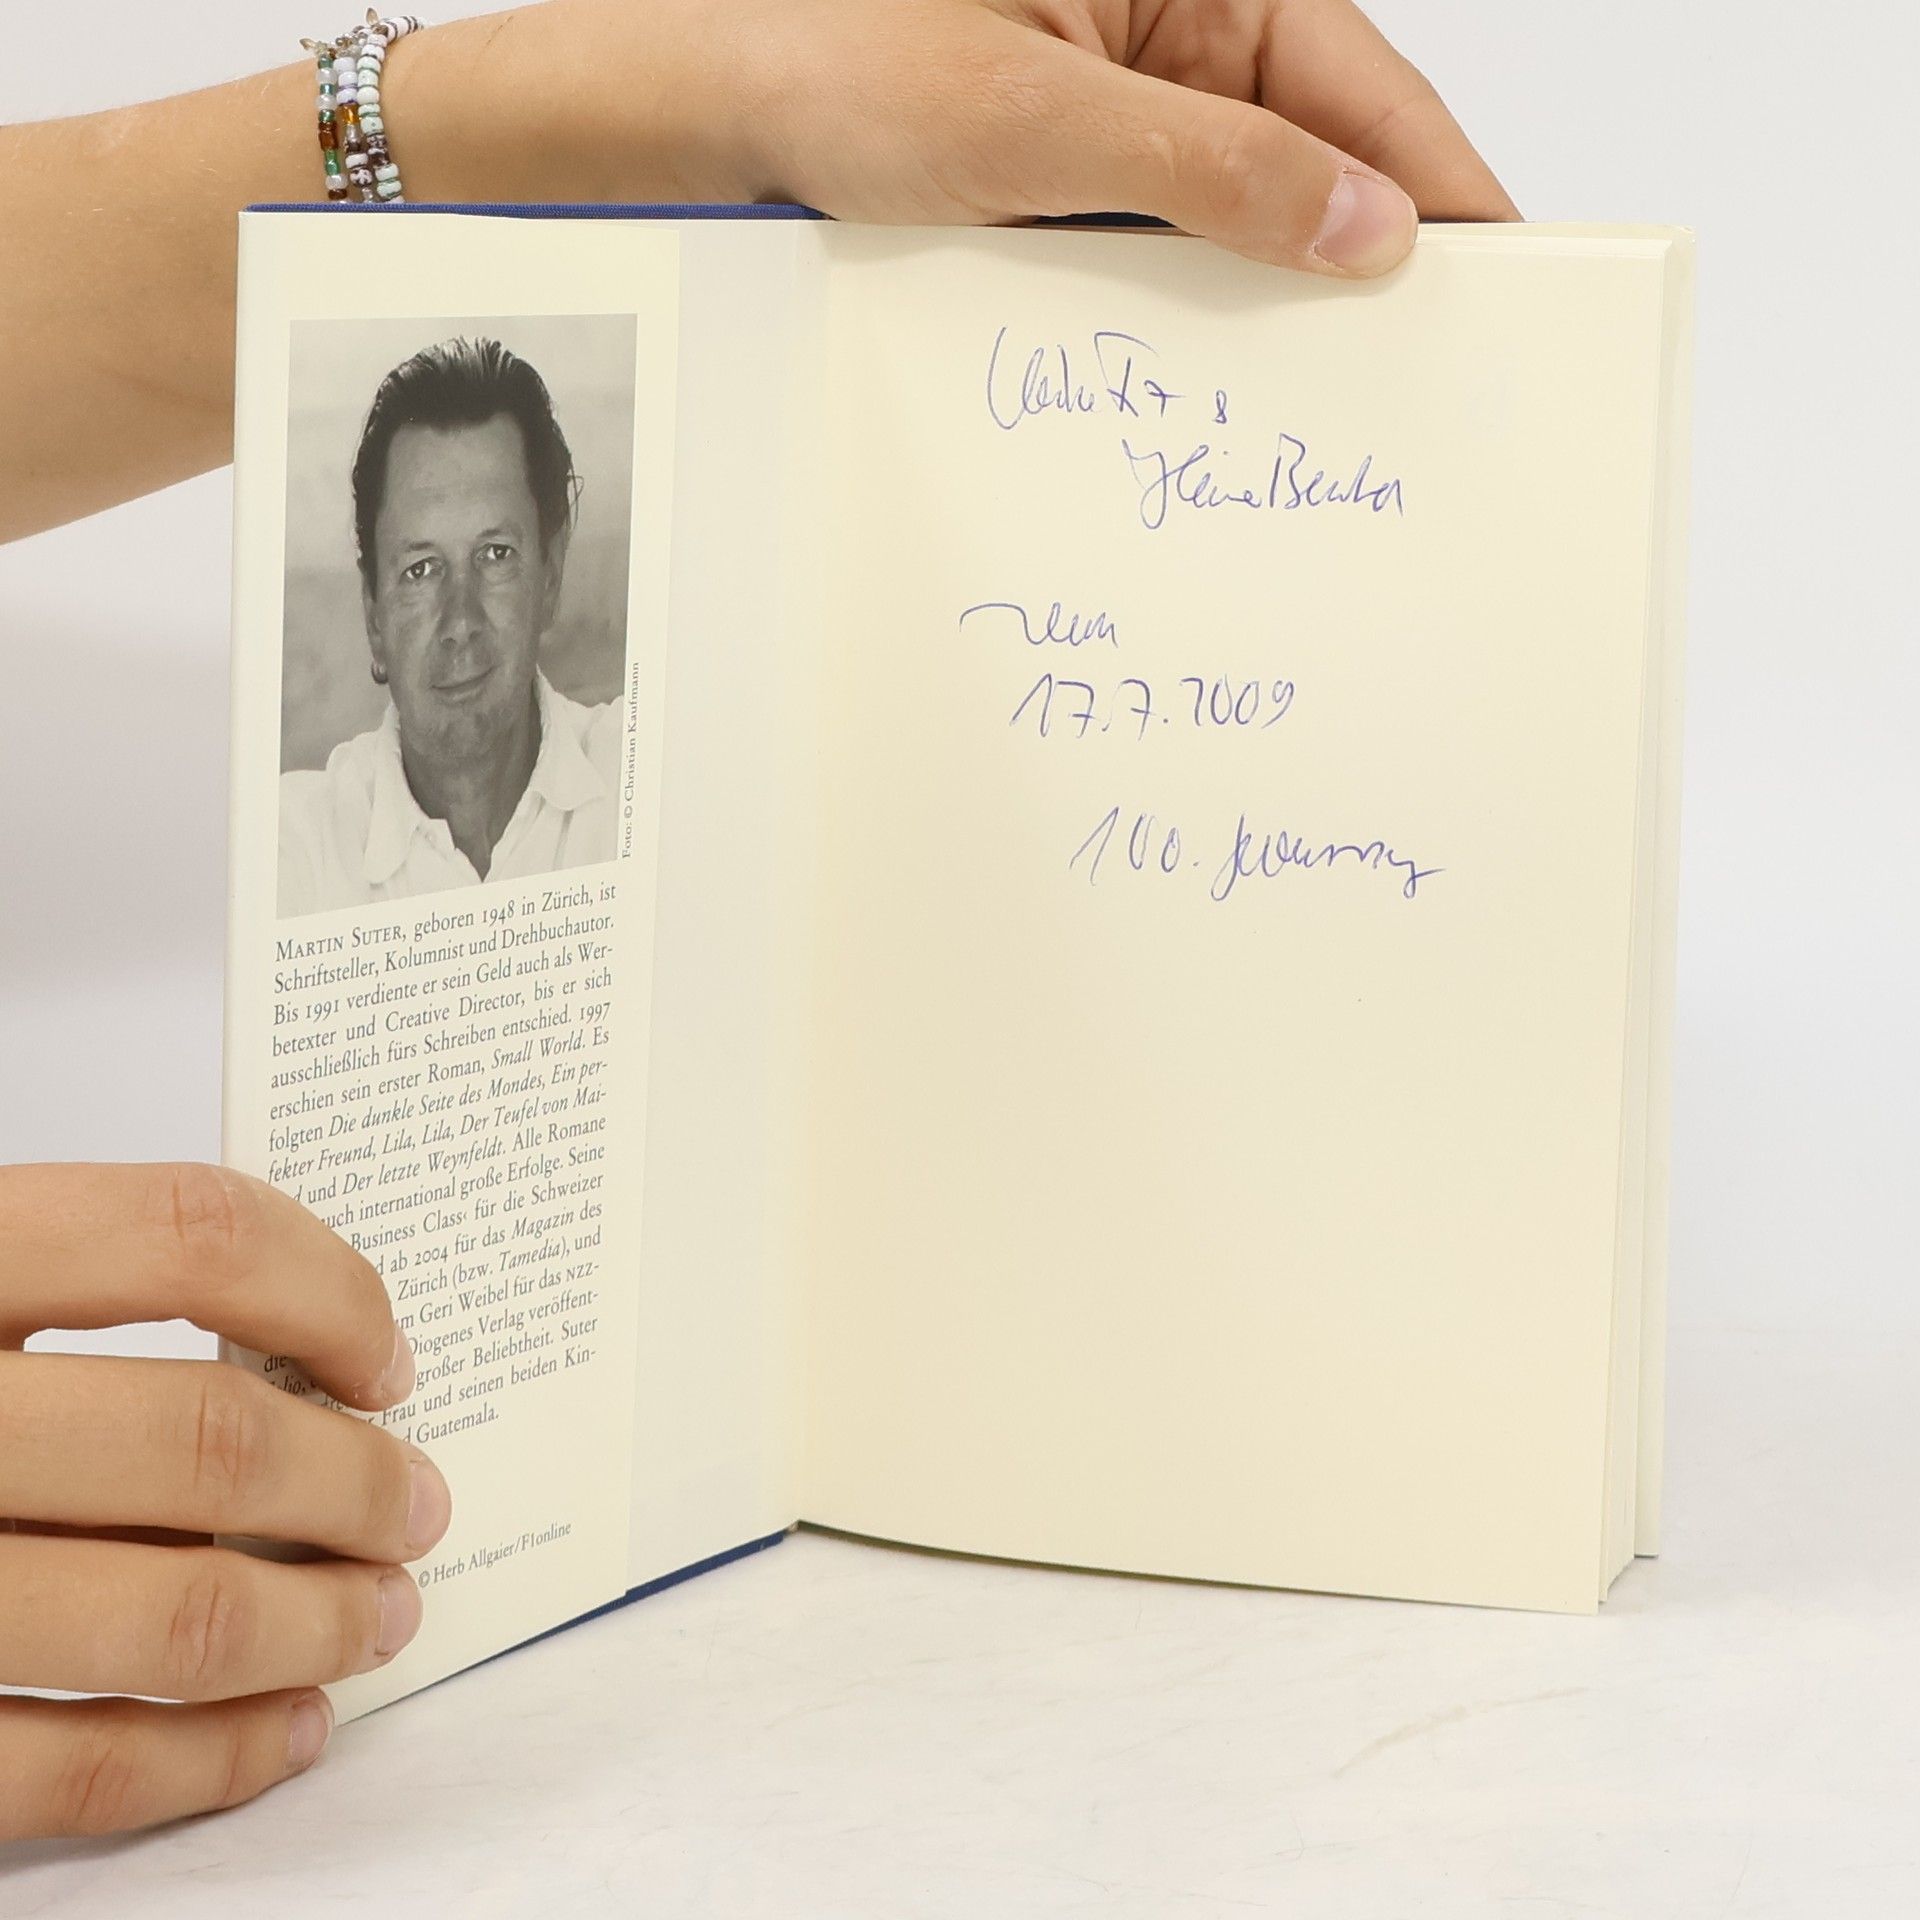 Foto: © Christian Kaufmann
MARTIN SUTER, geboren 1948 in Zürich, ist
Schriftsteller, Kolumnist und Drehbuchautor.
Bis 1991 verdiente er sein Geld auch als Wer-
betexter und Creative Director, bis er sich
ausschließlich fürs Schreiben entschied. 1997
erschien sein erster Roman, Small World. Es
folgten Die dunkle Seite des Mondes, Ein per-
fekter Freund, Lila, Lila, Der Teufel von Mai-
und Der letzte Weynfeldt. Alle Romane
international große Erfolge. Seine
Business Class‹ für die Schweizer
ab 2004 für das Magazin des
Zürich (bzw. Tamedia), und
Geri Weibel für das NZZ-
Diogenes Verlag veröffent-
die großer Beliebtheit. Suter
Frau und seinen beiden Kin-
Guatemala.
© Herb Allgaier/F1online
17.7.2009
100.